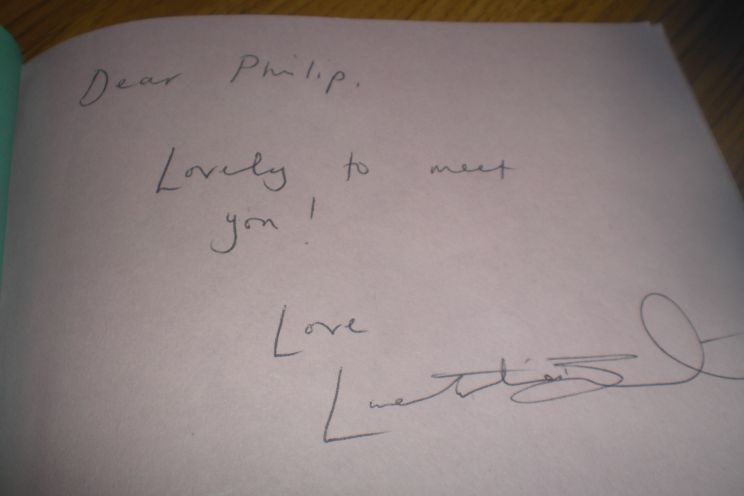 Dear Philip.
Lovely to meet
you!
Love